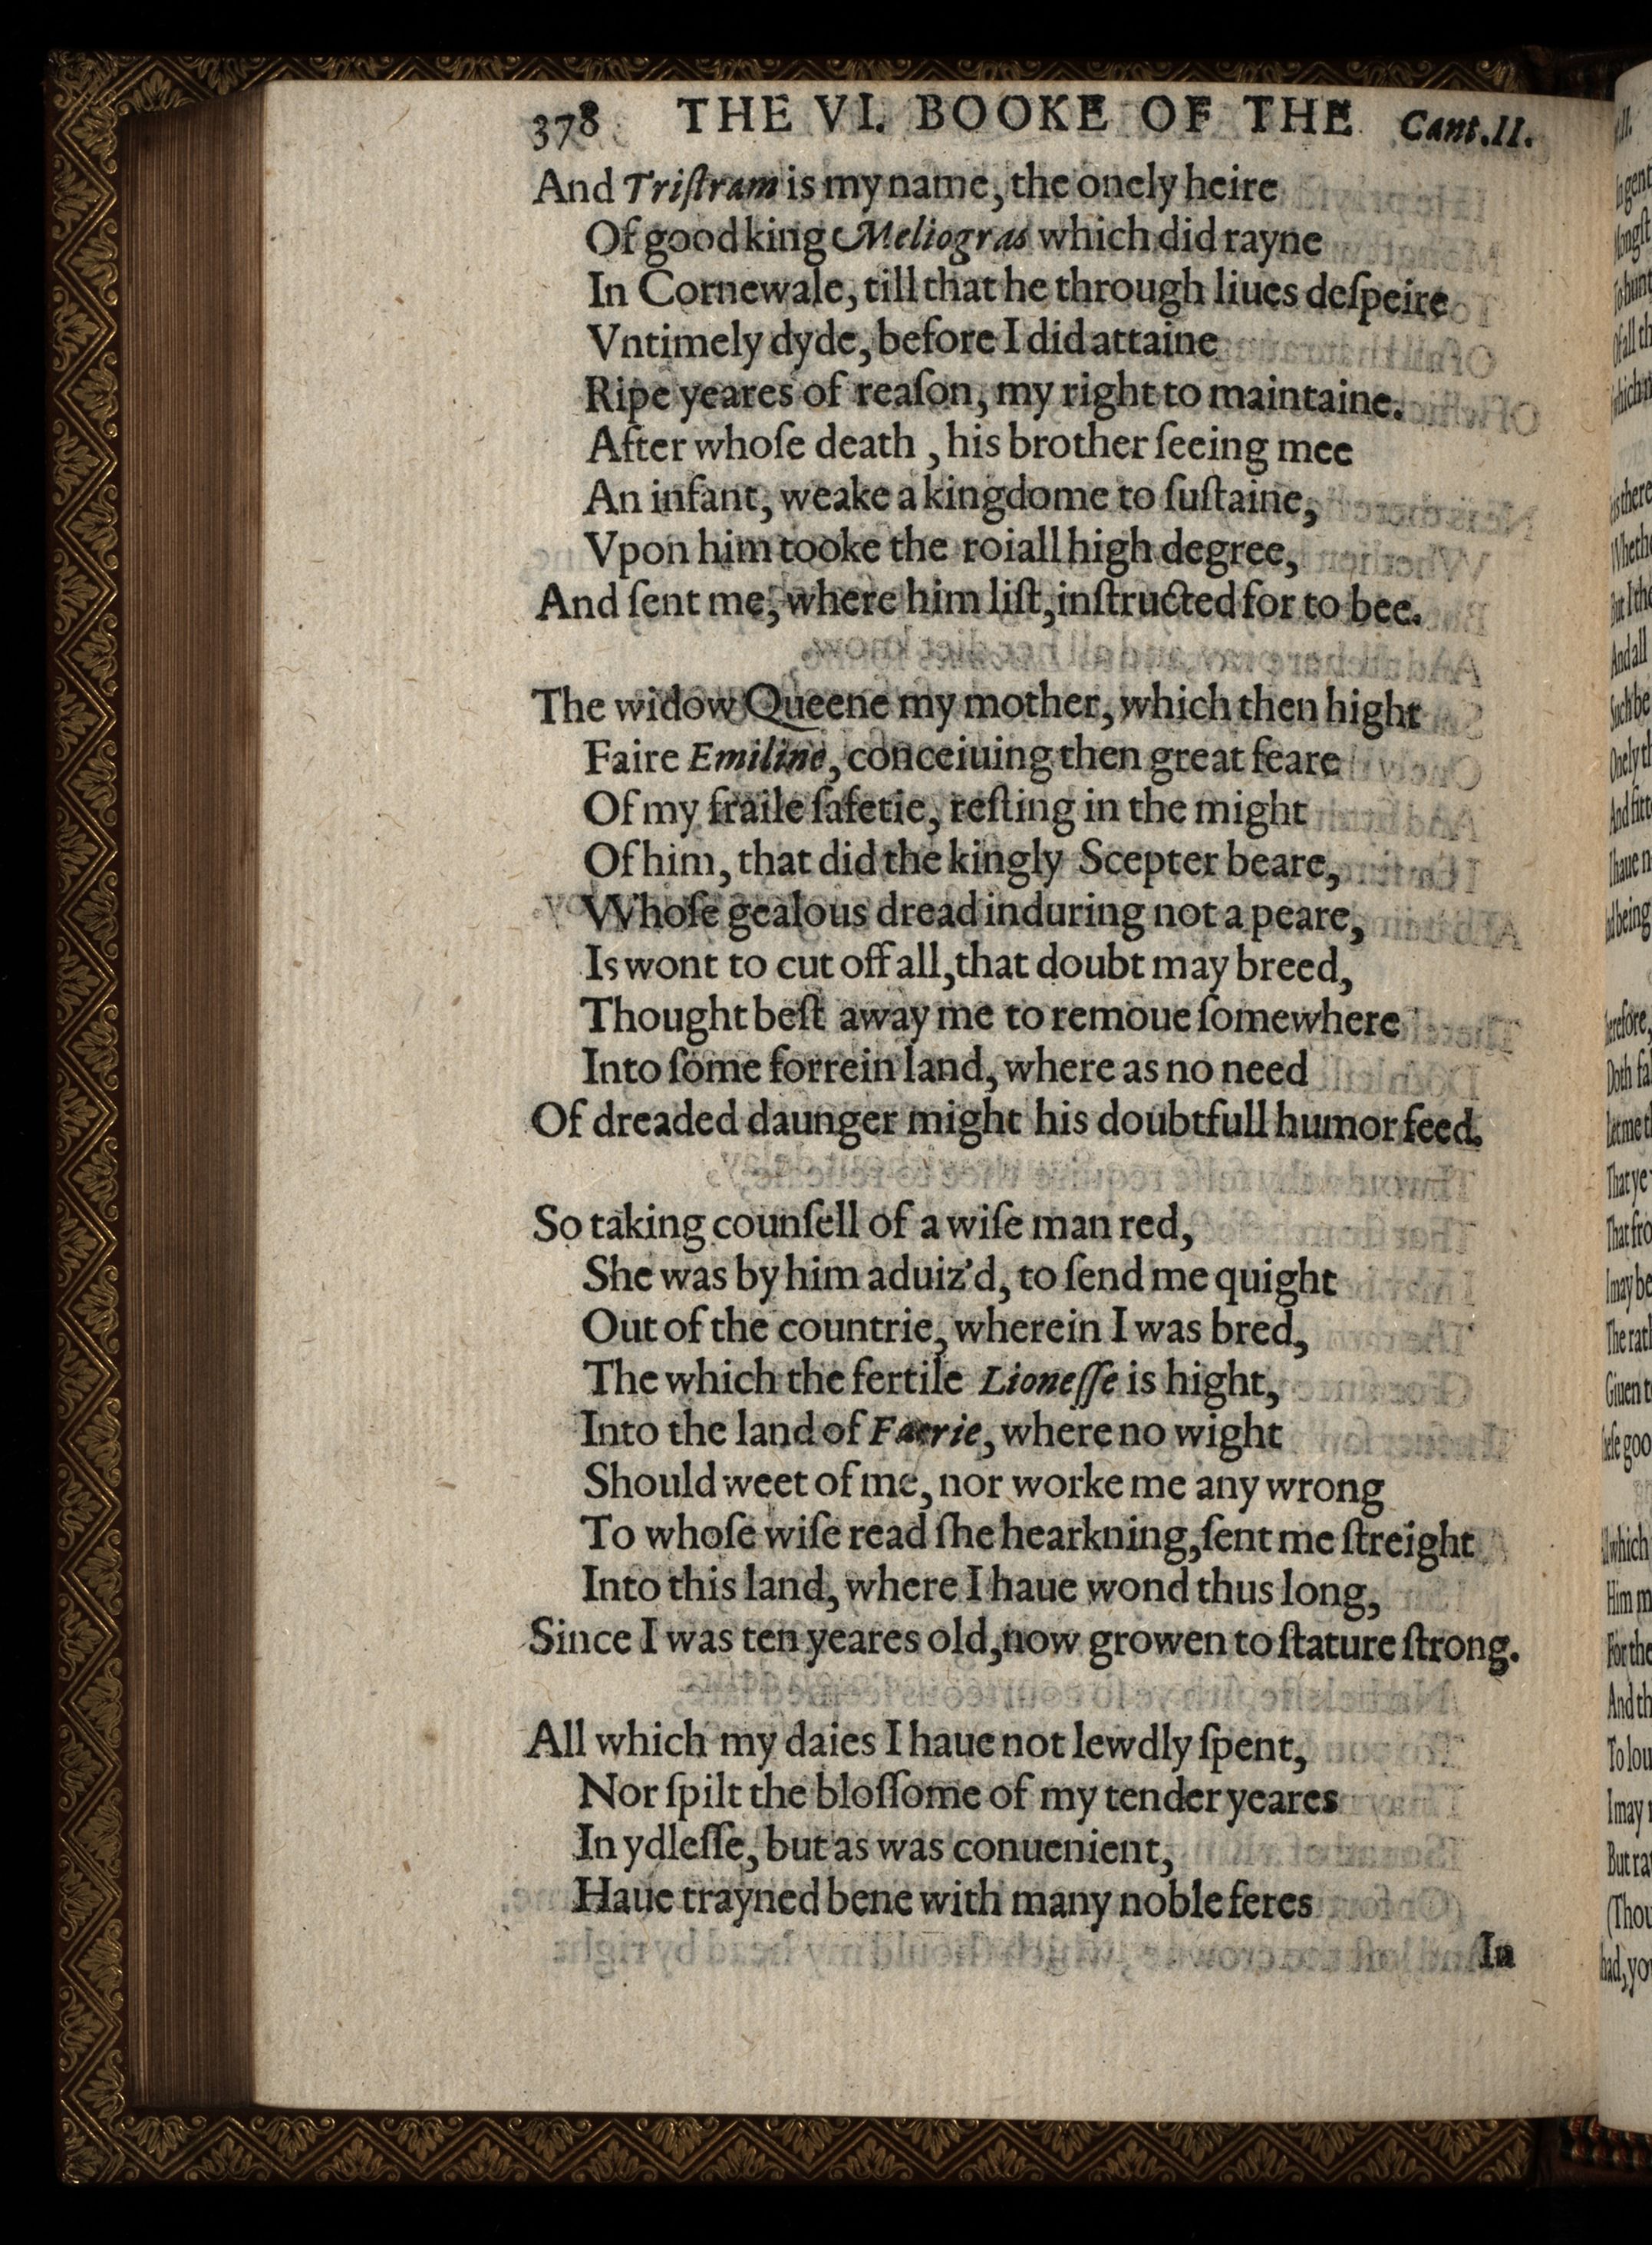 378 THE VI. BOOKE OF THE Cant.II.
And Triſtram is my name, the onely heire
Of good king Meliogras which did rayne
In Cornewale, till that he through liues deſpeire
Vntimely dyde, before I did attaine
Ripe yeares of reaſon, my right to maintaine.
After whoſe death , his brother ſeeing mee
An infant, weake a kingdome to ſuſtaine,
Vpon him tooke the roiall high degree,
And ſent me, where him liſt, inſtructed for to bee.
The widow Queene my mother, which then hight
Faire Emiline, conceiuing then great feare
Of my fraile ſafetie, reſting in the might
Of him, that did the kingly Scepter beare,
VVhoſe gealous dread induring not a peare,
Is wont to cut off all, that doubt may breed,
Thought beſt away me to remoue ſomewhere
Into ſome forrein land, where as no need
Of dreaded daunger might his doubtfull humor feed.
So taking counſell of a wiſe man red,
She was by him aduiz'd, to ſend me quight
Out of the countrie, wherein I was bred,
The which the fertile Lioneſſe is hight,
Into the land of Faerie, where no wight
Should weet of me, nor worke me any wrong
To whoſe wiſe read ſhe hearkning, ſent me ſtreight
Into this land, where I haue wond thus long,
Since I was ten yeares old, now growen to ſtature ſtrong.
All which my daies I haue not lewdly ſpent,
Nor ſpilt the bloſſome of my tender yeares
In ydleſſe, but as was conuenient,
Haue trayned bene with many noble feres
In